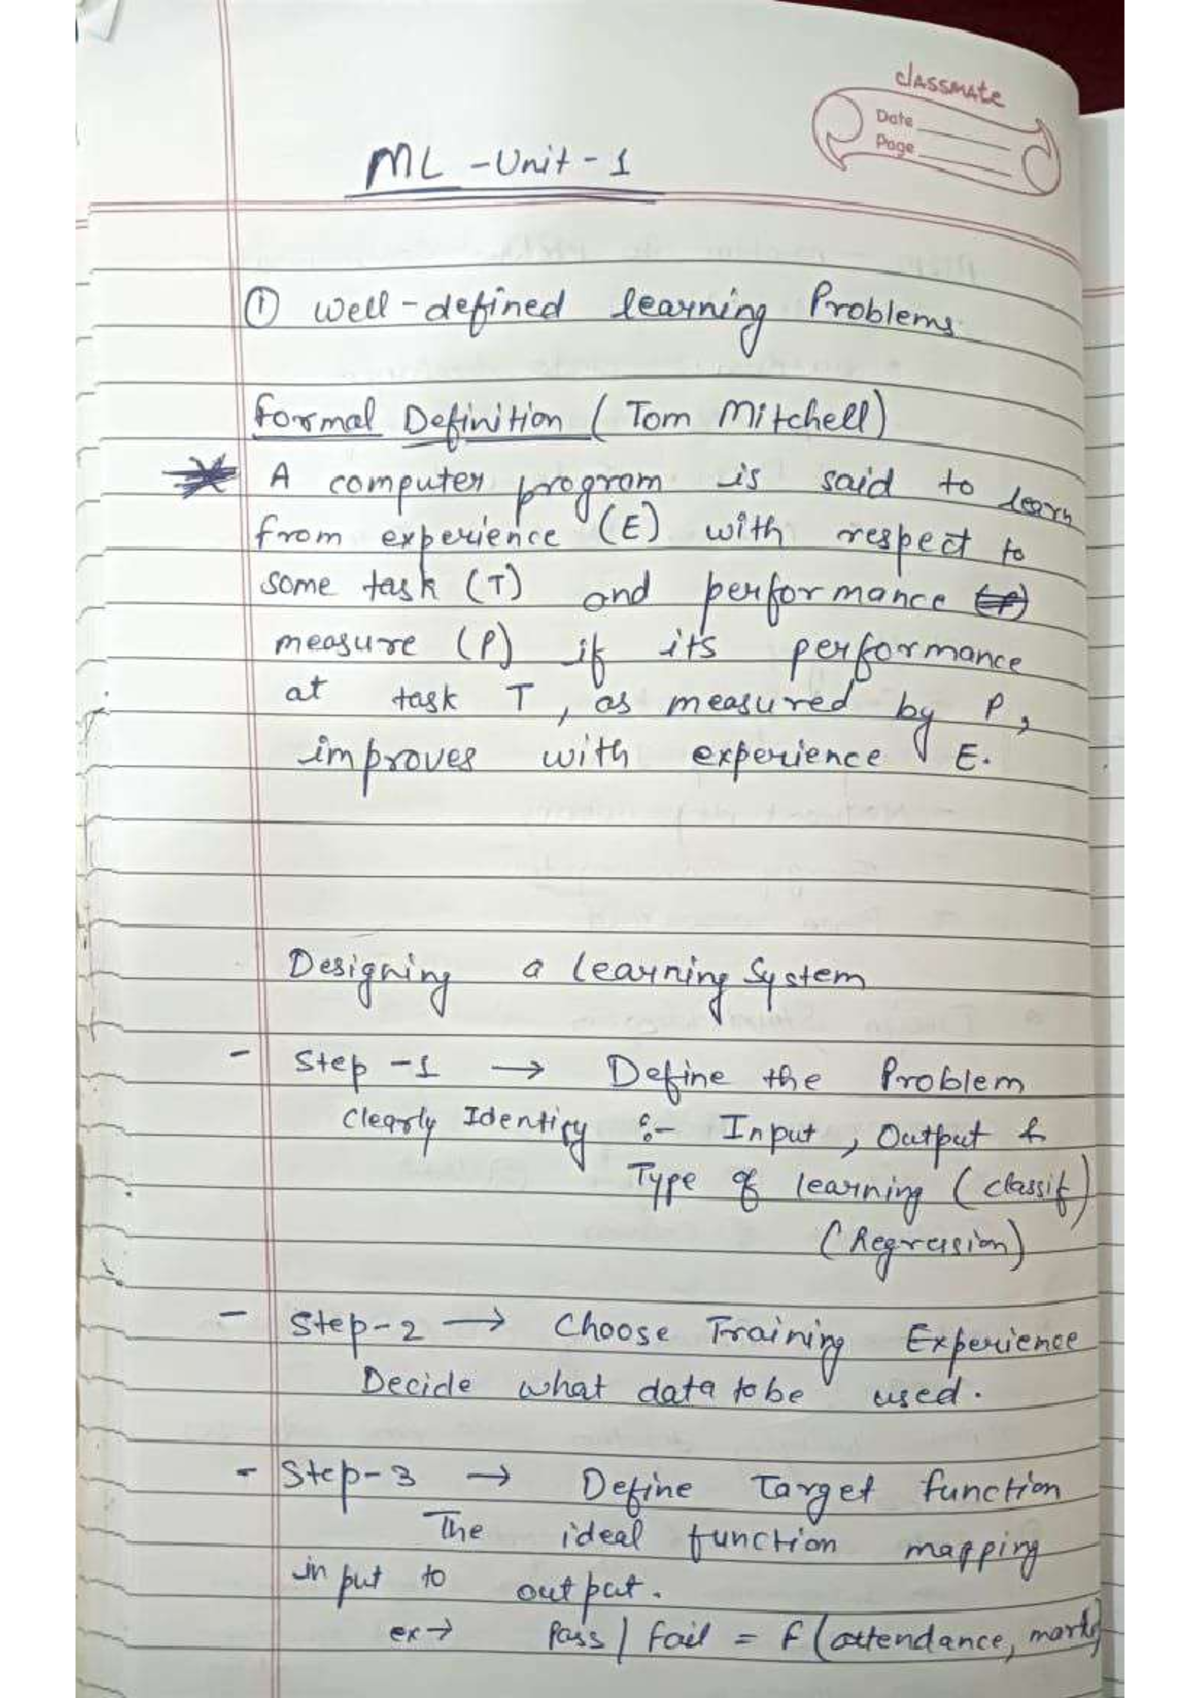 classmate
Date
Page
ML - Unit - 1
① Well-defined learning Problems.
Formal Definition (Tom Mitchell)
A computer program is said to learn
from experience (E) with respect to
some task (T) and performance (P)
measure (P) if its performance
at task T, as measured by P,
improves with experience E.
Designing a learning System
- Step -1 → Define the Problem
Clearly Identify :- Input, Output &
Type of learning (classif)
(Regression)
- Step-2 → Choose Training Experience
Decide what data to be used.
- Step-3 → Define Target function
The ideal function mapping
input to output.
ex → Pass / Fail = f (attendance, marks)